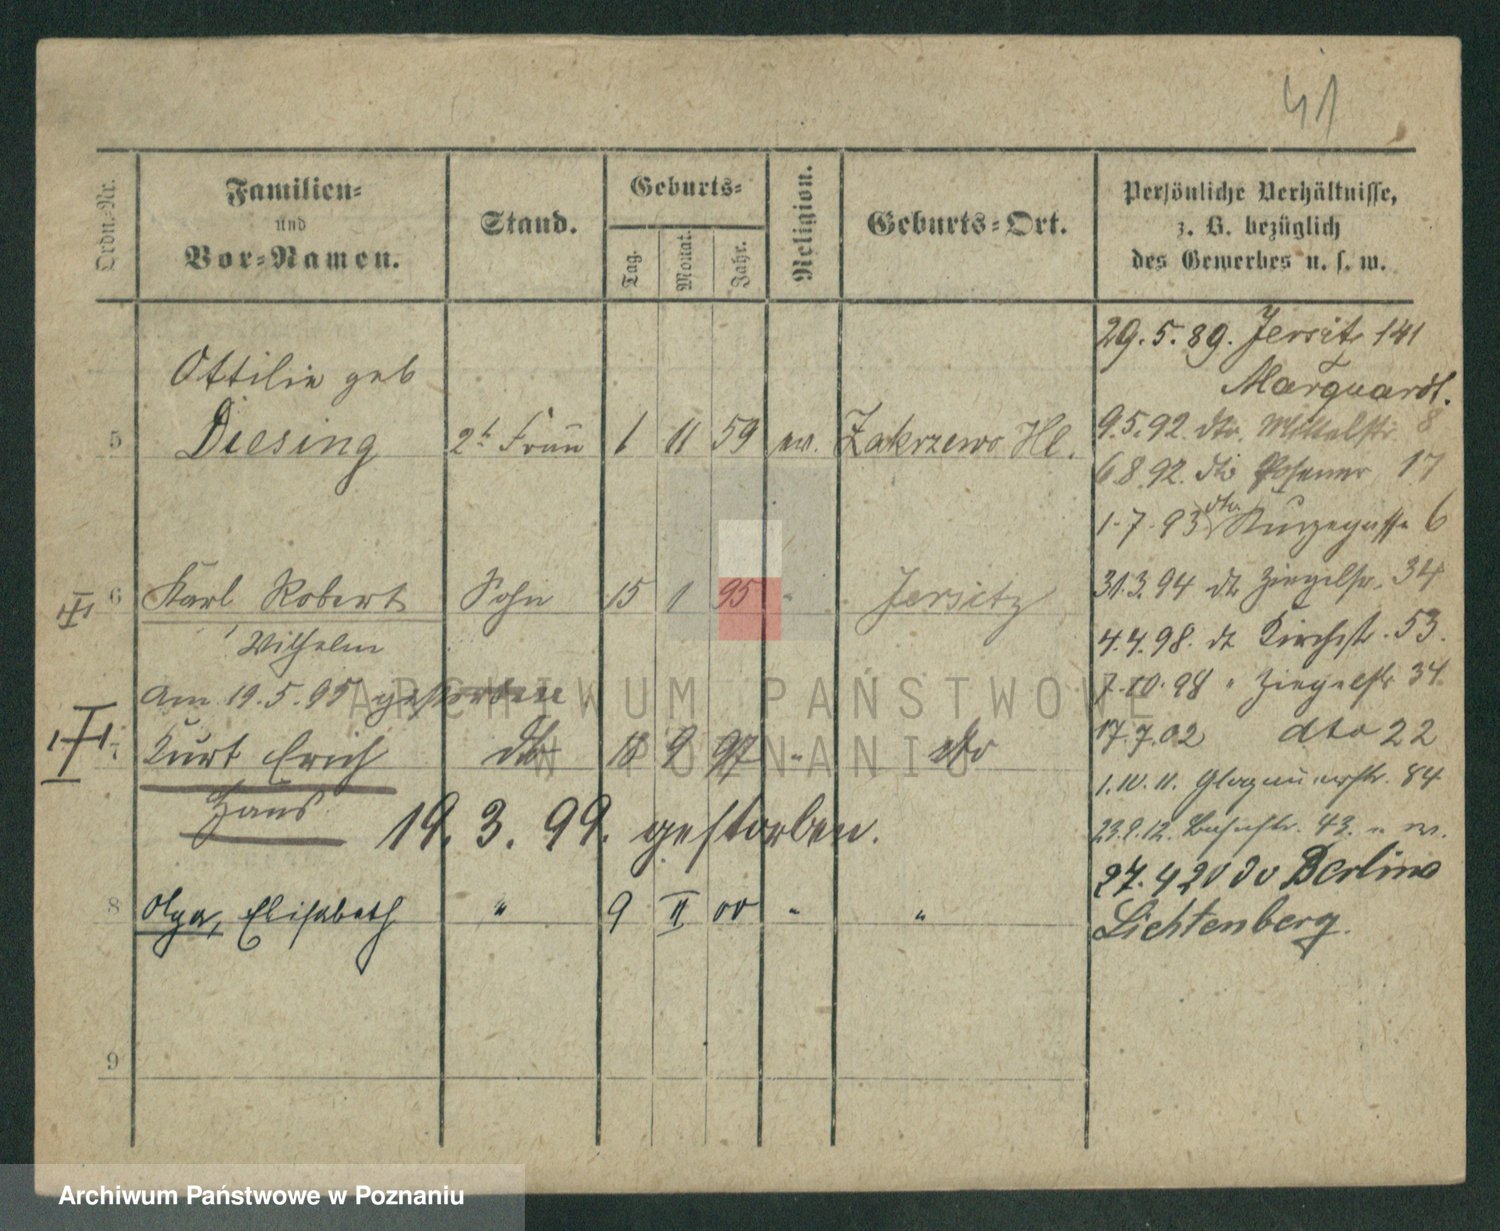 41
Ordn.-Nr.
Familien-
und
Vor-Namen.
Stand.
Geburts-
Tag.
Monat.
Jahr.
Religion.
Geburts-Ort.
Persönliche Verhältnisse,
z. B. bezüglich
des Gewerbes u. s. w.
Ottilie geb
5 Diesing 2te Frau 1 11 59 ev. Zakrzewo Hl.
6 Karl Robert Sohn 15 1 95 " Jersitz
Wilhelm
am 19.5.95 gestorben
7 Kurt Erich dto 18 9 97 " dto
Hans
19. 3. 99. gestorben.
8 Olga, Elisabeth " 9 II 00 " "
9
29. 5. 89. Jersitz 141
Marquardt.
9.5.92. dto. Mittelstr. 8
6.8.92. dto Posener 17
1.7.93 dto Kurzegasse 6
31.3.94 dto Ziegelstr. 34
4.4.98. dto Kirchstr. 53.
7.10.98 " Ziegelstr 34.
17.7.02 dto 22
1.10.11. Glogauerstr. 84
23.9.12. Bahnstr. 43.
27.4 20 do Berlin
Lichtenberg.
ARCHIWUM PAŃSTWOWE
W POZNANIU
Archiwum Państwowe w Poznaniu